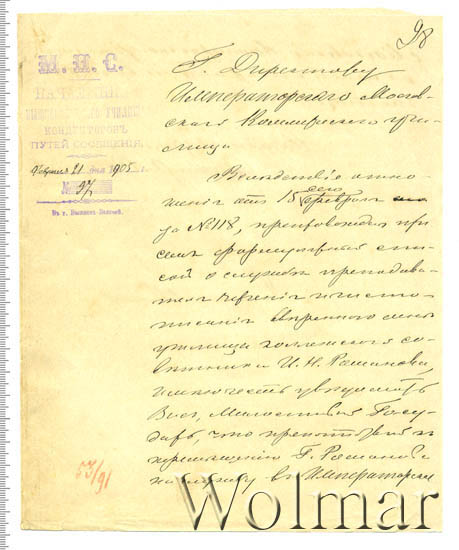 98
М. П. С.
НАЧАЛЬНИКЪ
КОНДУКТОРОВЪ
ПУТЕЙ СООБЩЕНІЯ
Февраля 21 дня 1905 г.
№ 97
Въ г. Вышнем-Волочкѣ.
Г. Директору
Императорскаго Москов-
скаго Коммерческаго учи-
лища
Вслѣдствіе отно-
шенія отъ 15 сего февраля
за № 118, препровождая при
семъ формулярный спи-
сокъ о службѣ преподава-
теля черченія и чисто-
писанія ввѣреннаго мнѣ
училища коллежскаго со-
вѣтника И. Н.
имѣю честь увѣдомить
Васъ, Милостивый Госу-
дарь, что препятствій къ
перемѣщенію Г.
на службу въ Императорское
53/91
Wolmar